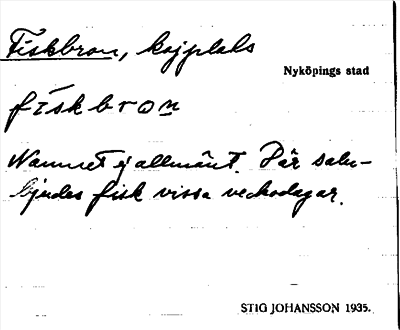 Fiskbron, kajplats
Nyköpings stad
fiskbron
Namnet ej allmänt. Här salu-
bjudes fisk vissa veckodagar.
STIG JOHANSSON 1935.